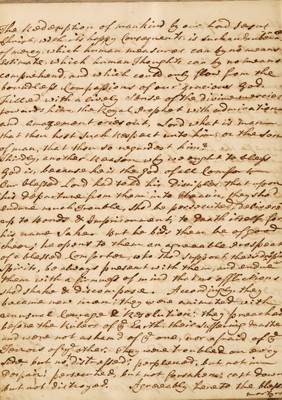 The Redemption of mankind by our Lord Jesus
Christ, with its happy Consequents is such an
of mercy, which human measures can by no means
Estimate, which human Thoughts can by no means
comprehend, and which could only flow from the
boundless Compassions of our gracious God
Filled with a lively Sense of the divine mercies
toward him, the Royal Psalmist with admiration
and amazement cries out, Lord what is man
that thou hast such Respect unto him; or the son
of man, that thou so regardest him?
Thirdly another Reason why we ought to bless
God is, because he is the God of all Comfort.
Our blessed Lord had told his Disciples, that after
his departure from them into Heaven, they should
endure much trouble, shd be persecuted, delivered
up to Bonds & Imprisonments, to death itself for
his name Sake. But he bids them be of good
cheer; he opens to them an agreeable prospect
of a blessed Comforter, who shd support their
Spirits, be always present with them, and endue
them with a firmness of mind that no afflictions
shd shake & discompose. Accordingly they
became new men; they were animated with
unusual Courage & Resolution: they preached
before the Rulers of ye Earth their suffering master
and were not ashamed of ye one, nor afraid of ye
Terrors of ye other. They were troubled on every
side, yet not distressed; perplexed, but not in
despair; persecuted, but not forsaken; cast down
but not destroyed. Agreeably hereto the blessed
martyrs